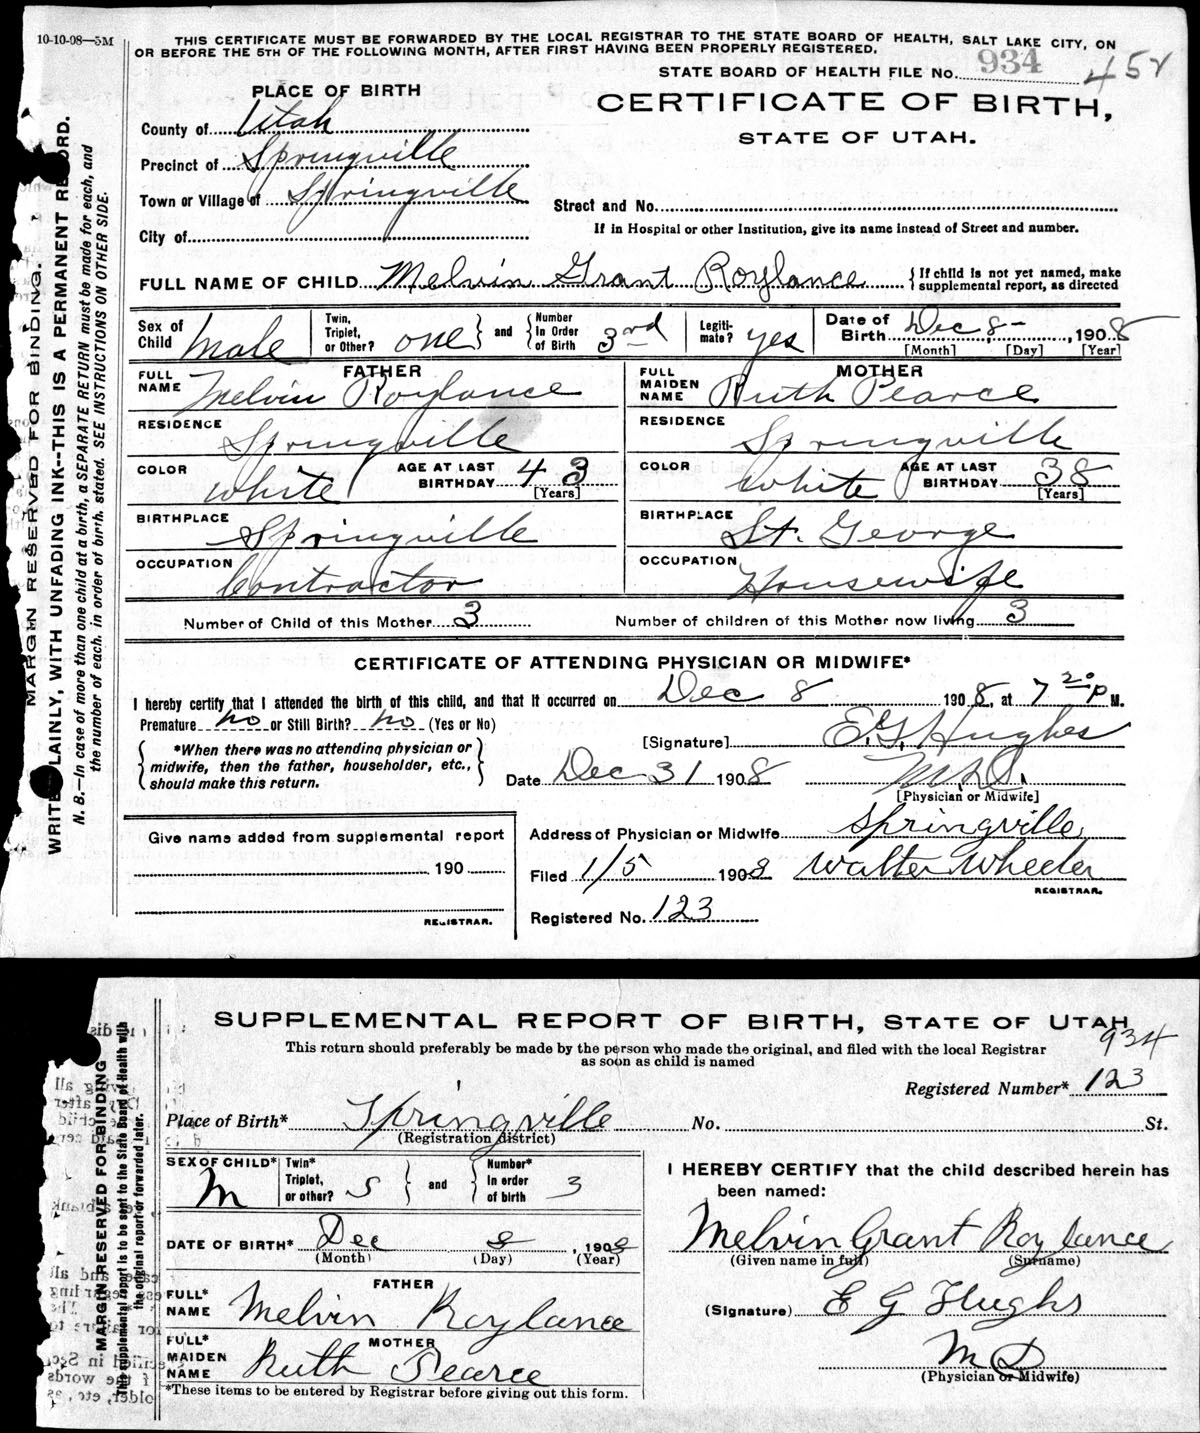 10-10-08—5M
THIS CERTIFICATE MUST BE FORWARDED BY THE LOCAL REGISTRAR TO THE STATE BOARD OF HEALTH, SALT LAKE CITY, ON
OR BEFORE THE 5TH OF THE FOLLOWING MONTH, AFTER FIRST HAVING BEEN PROPERLY REGISTERED.
STATE BOARD OF HEALTH FILE No. 934 452
PLACE OF BIRTH
CERTIFICATE OF BIRTH,
STATE OF UTAH.
County of Utah
Precinct of Springville
Town or Village of Springville
Street and No.
City of
If in Hospital or other Institution, give its name instead of Street and number.
FULL NAME OF CHILD Melvin Grant Roylance { If child is not yet named, make supplemental report, as directed
Sex of Child Male Twin, Triplet, or Other? one } and { Number In Order of Birth 3rd Legiti-mate? yes Date of Birth Dec 8 - , 1908
[Month] [Day] [Year]
FATHER
FULL NAME Melvin Roylance
RESIDENCE Springville
COLOR White AGE AT LAST BIRTHDAY 43 [Years]
BIRTHPLACE Springville
OCCUPATION Contractor
MOTHER
FULL MAIDEN NAME Ruth Pearce
RESIDENCE Springville
COLOR White AGE AT LAST BIRTHDAY 38 [Years]
BIRTHPLACE St. George
OCCUPATION Housewife
Number of Child of this Mother 3 Number of children of this Mother now living 3
CERTIFICATE OF ATTENDING PHYSICIAN OR MIDWIFE*
I hereby certify that I attended the birth of this child, and that it occurred on Dec 8 1908, at 7 20 P M.
Premature no or Still Birth? no (Yes or No)
[Signature] E. G. Hughes
{ *When there was no attending physician or midwife, then the father, householder, etc., should make this return. }
Date Dec 31 1908 M.D.
[Physician or Midwife]
Give name added from supplemental report
190
REGISTRAR.
Address of Physician or Midwife Springville
Filed 1/5 1908 Walter Wheeler
REGISTRAR.
Registered No. 123
MARGIN RESERVED FOR BINDING.
WRITE PLAINLY, WITH UNFADING INK--THIS IS A PERMANENT RECORD.
N. B.—In case of more than one child at a birth, a SEPARATE RETURN must be made for each, and
the number of each, in order of birth, stated. SEE INSTRUCTIONS ON OTHER SIDE.
SUPPLEMENTAL REPORT OF BIRTH, STATE OF UTAH
934
This return should preferably be made by the person who made the original, and filed with the local Registrar
as soon as child is named
Registered Number* 123
Place of Birth* Springville No. St.
(Registration district)
SEX OF CHILD* M Twin* Triplet, or other? S } and { Number* in order of birth 3
DATE OF BIRTH* Dec 8, 1908
(Month) (Day) (Year)
FATHER
FULL* NAME Melvin Roylance
MOTHER
FULL* MAIDEN NAME Ruth Pearce
*These items to be entered by Registrar before giving out this form.
I HEREBY CERTIFY that the child described herein has
been named:
Melvin Grant Roylance
(Given name in full) (Surname)
(Signature) E G Hughs
M D
(Physician or Midwife)
MARGIN RESERVED FOR BINDING
This supplemental report is to be sent to the State Board of Health with
the original report or forwarded later.